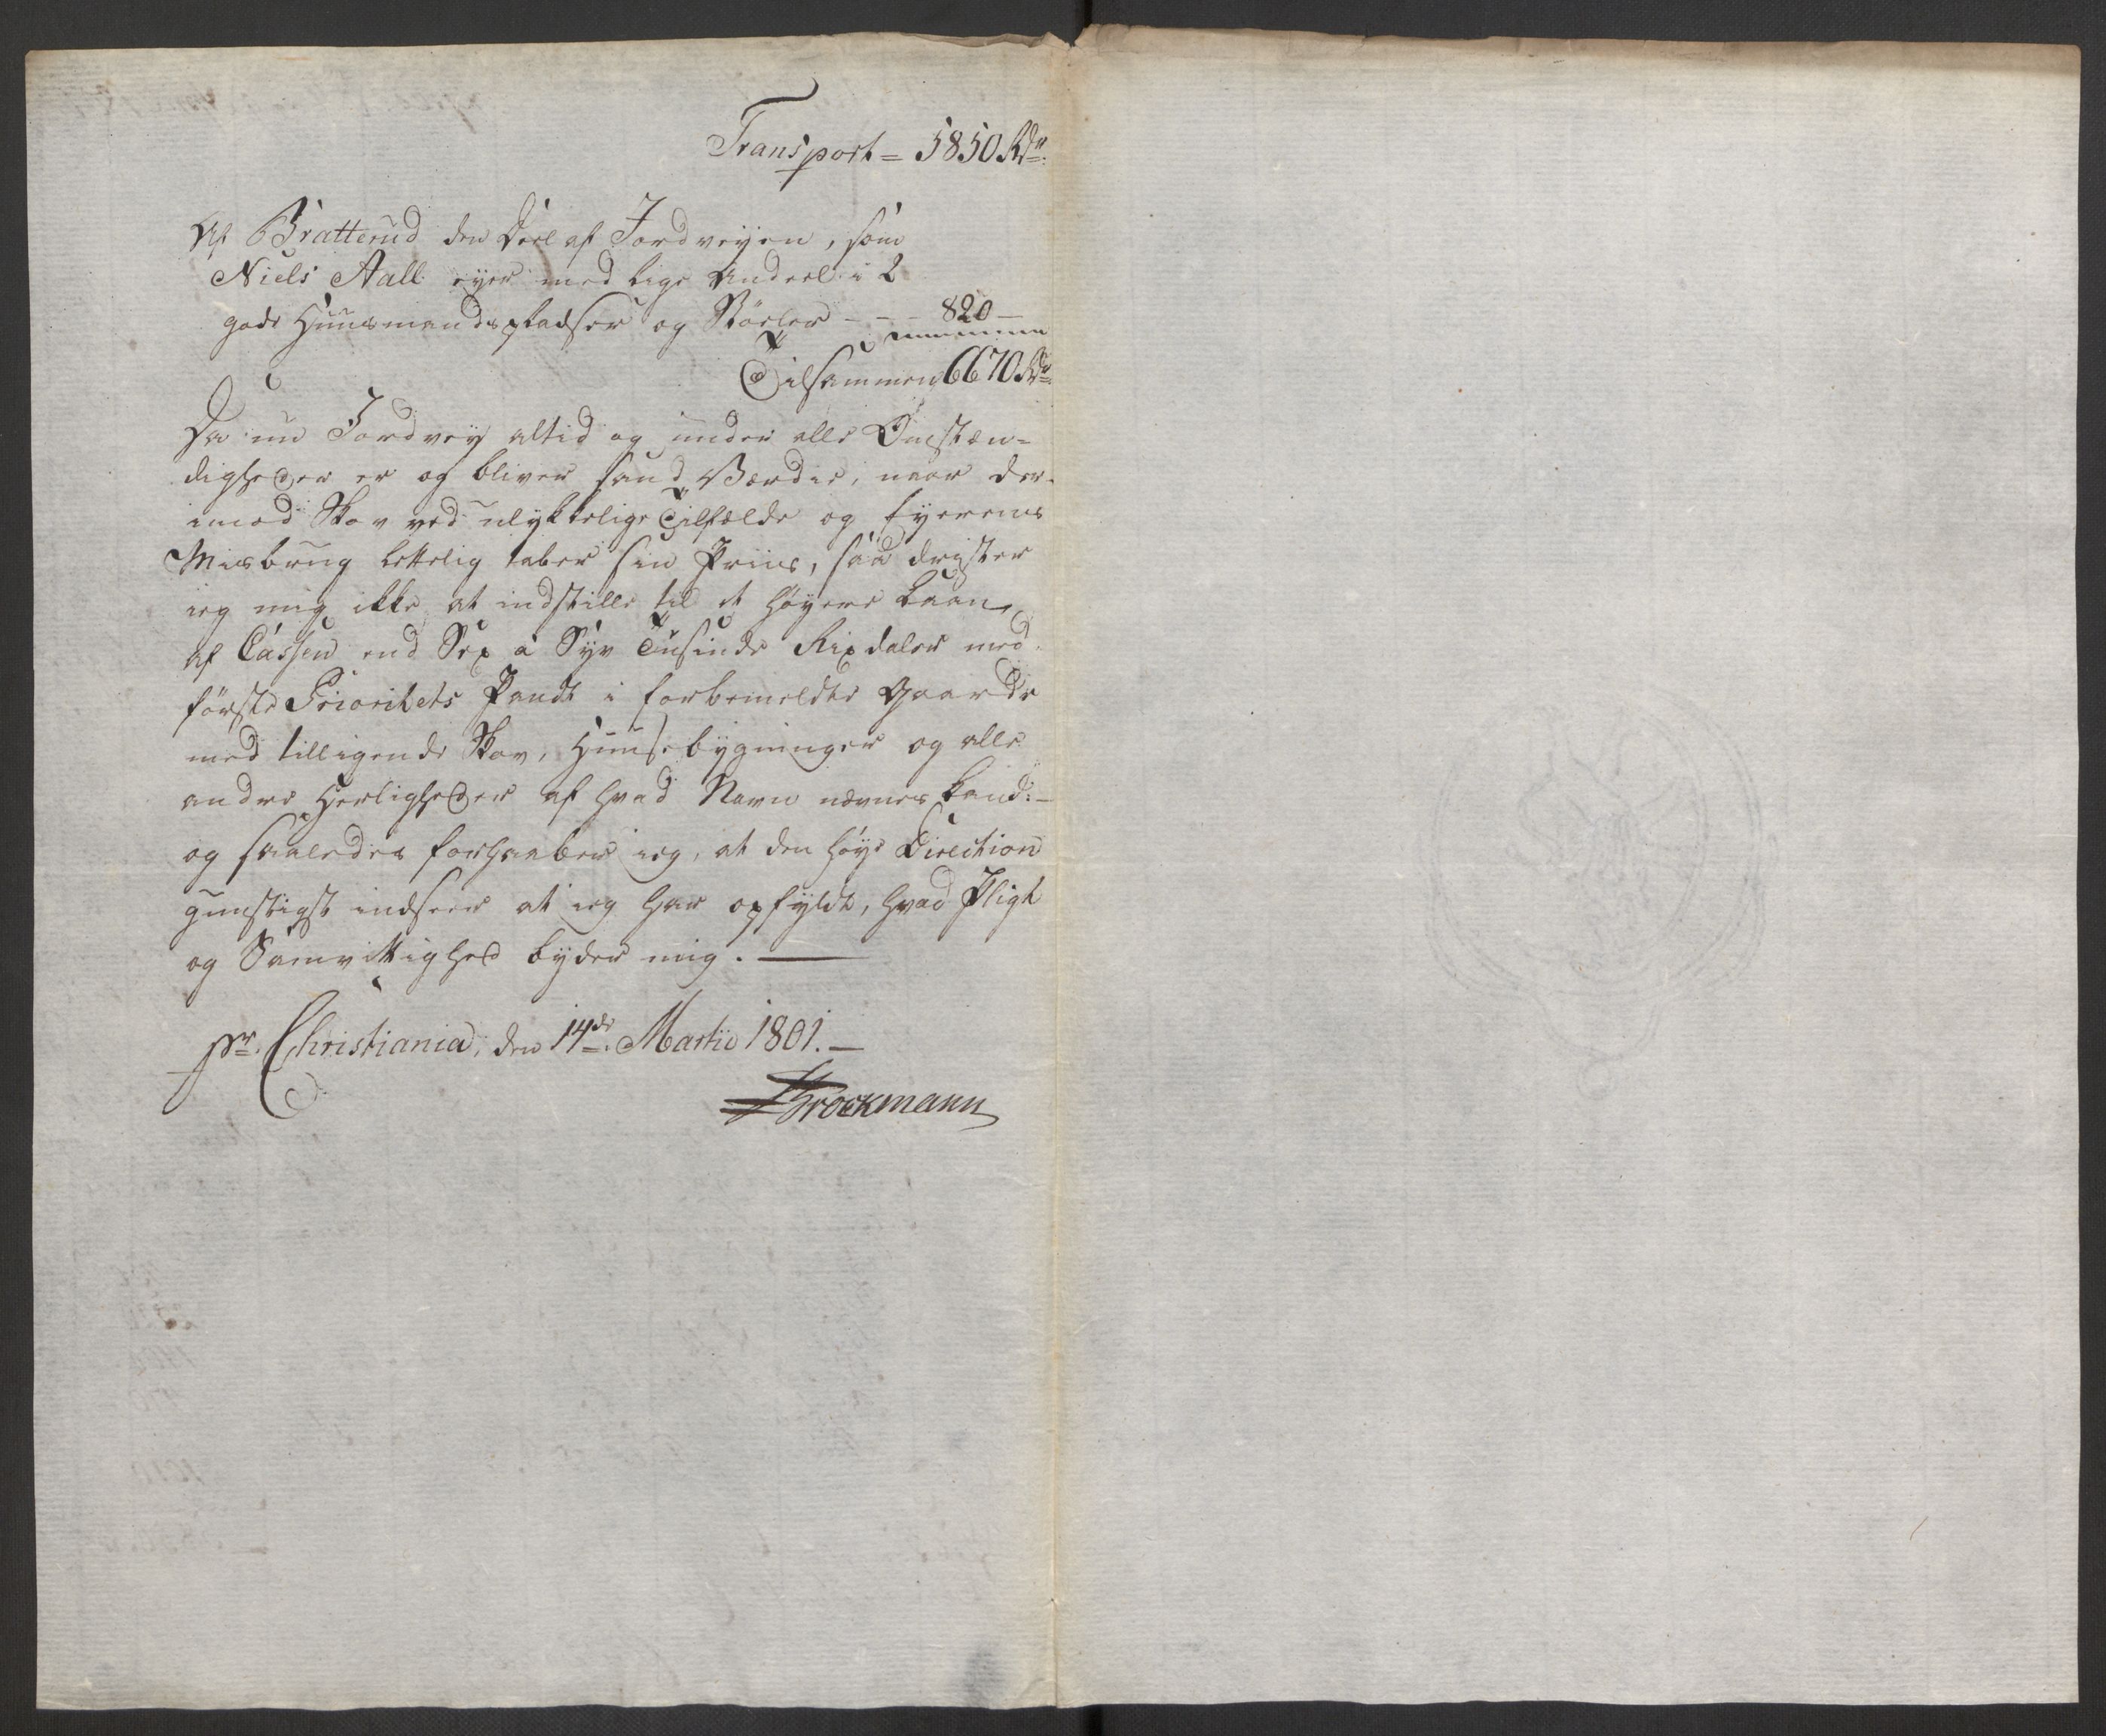 Transport = 5850 Rdr.
Af Bratterud den Deel af Jordveyen, som
Niels Aall eyer med lige Andeel i 2
gode Huusmandspladser og Støeler - - - 820 —
Tilsammen 6670 Rdr.
Da nu Jordvey altid og under alle Omstæn-
digheder er og bliver sand Værdie, naar der-
imod Skov ved ulykkelige Tilfælde og Eyerens
Misbrug lettelig taber sin Priis, saa drister
ieg mig ikke at indstille til et høyere Laan
af Cassen end Sex a Syv Tusinde Rixdaler med
første Prioritets Pandt i forbemeldte Gaarde
med tilligende Skov, Huusebygninger og alle
andre Herligheder af hvad Navn nævnes kand: —
og saaledes forhaaber ieg, at den høye Direction
gunstigst indseer at ieg har opfyldt, hvad Pligt
og Samvittighed byder mig. —
pr. Christiania, den 14de Martii 1801. —
Brockmann